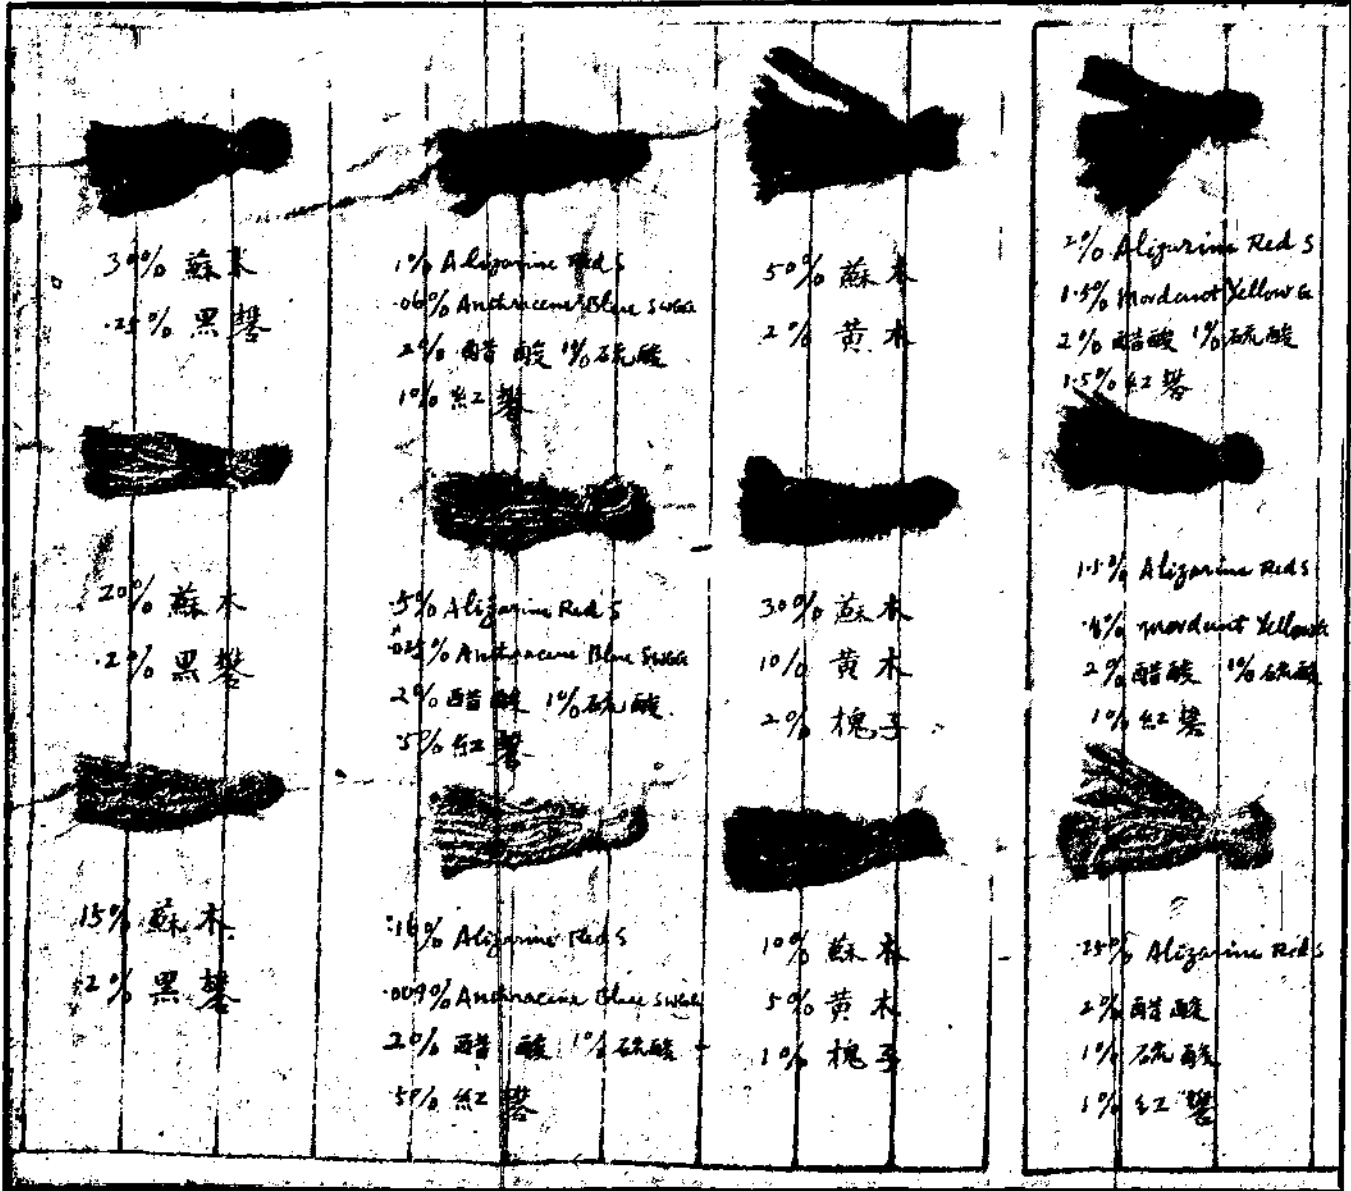 30% 蘇木
.25% 黑礬
20% 蘇木
.2% 黑礬
15% 蘇木
.2% 黑礬
1% Alizarine Red S
.06% Anthracene Blue SWGG
2% 醋酸 1% 硫酸
1% 紅礬
.5% Alizarine Red S
.025% Anthracene Blue SWGG
2% 醋酸 1% 硫酸
.5% 紅礬
.16% Alizarine Red S
.009% Anthracene Blue SWGG
2% 醋酸 1% 硫酸
.5% 紅礬
50% 蘇木
2% 黄木
30% 蘇木
10% 黄木
2% 槐子
10% 蘇木
5% 黄木
1% 槐子
2% Alizarine Red S
1.5% Mordant Yellow G
2% 醋酸 1% 硫酸
1.5% 紅礬
1.5% Alizarine Red S
Mordant Yellow G
2% 醋酸 1% 硫酸
1% 紅礬
.25% Alizarine Red S
2% 醋酸
1% 硫酸
1% 紅礬